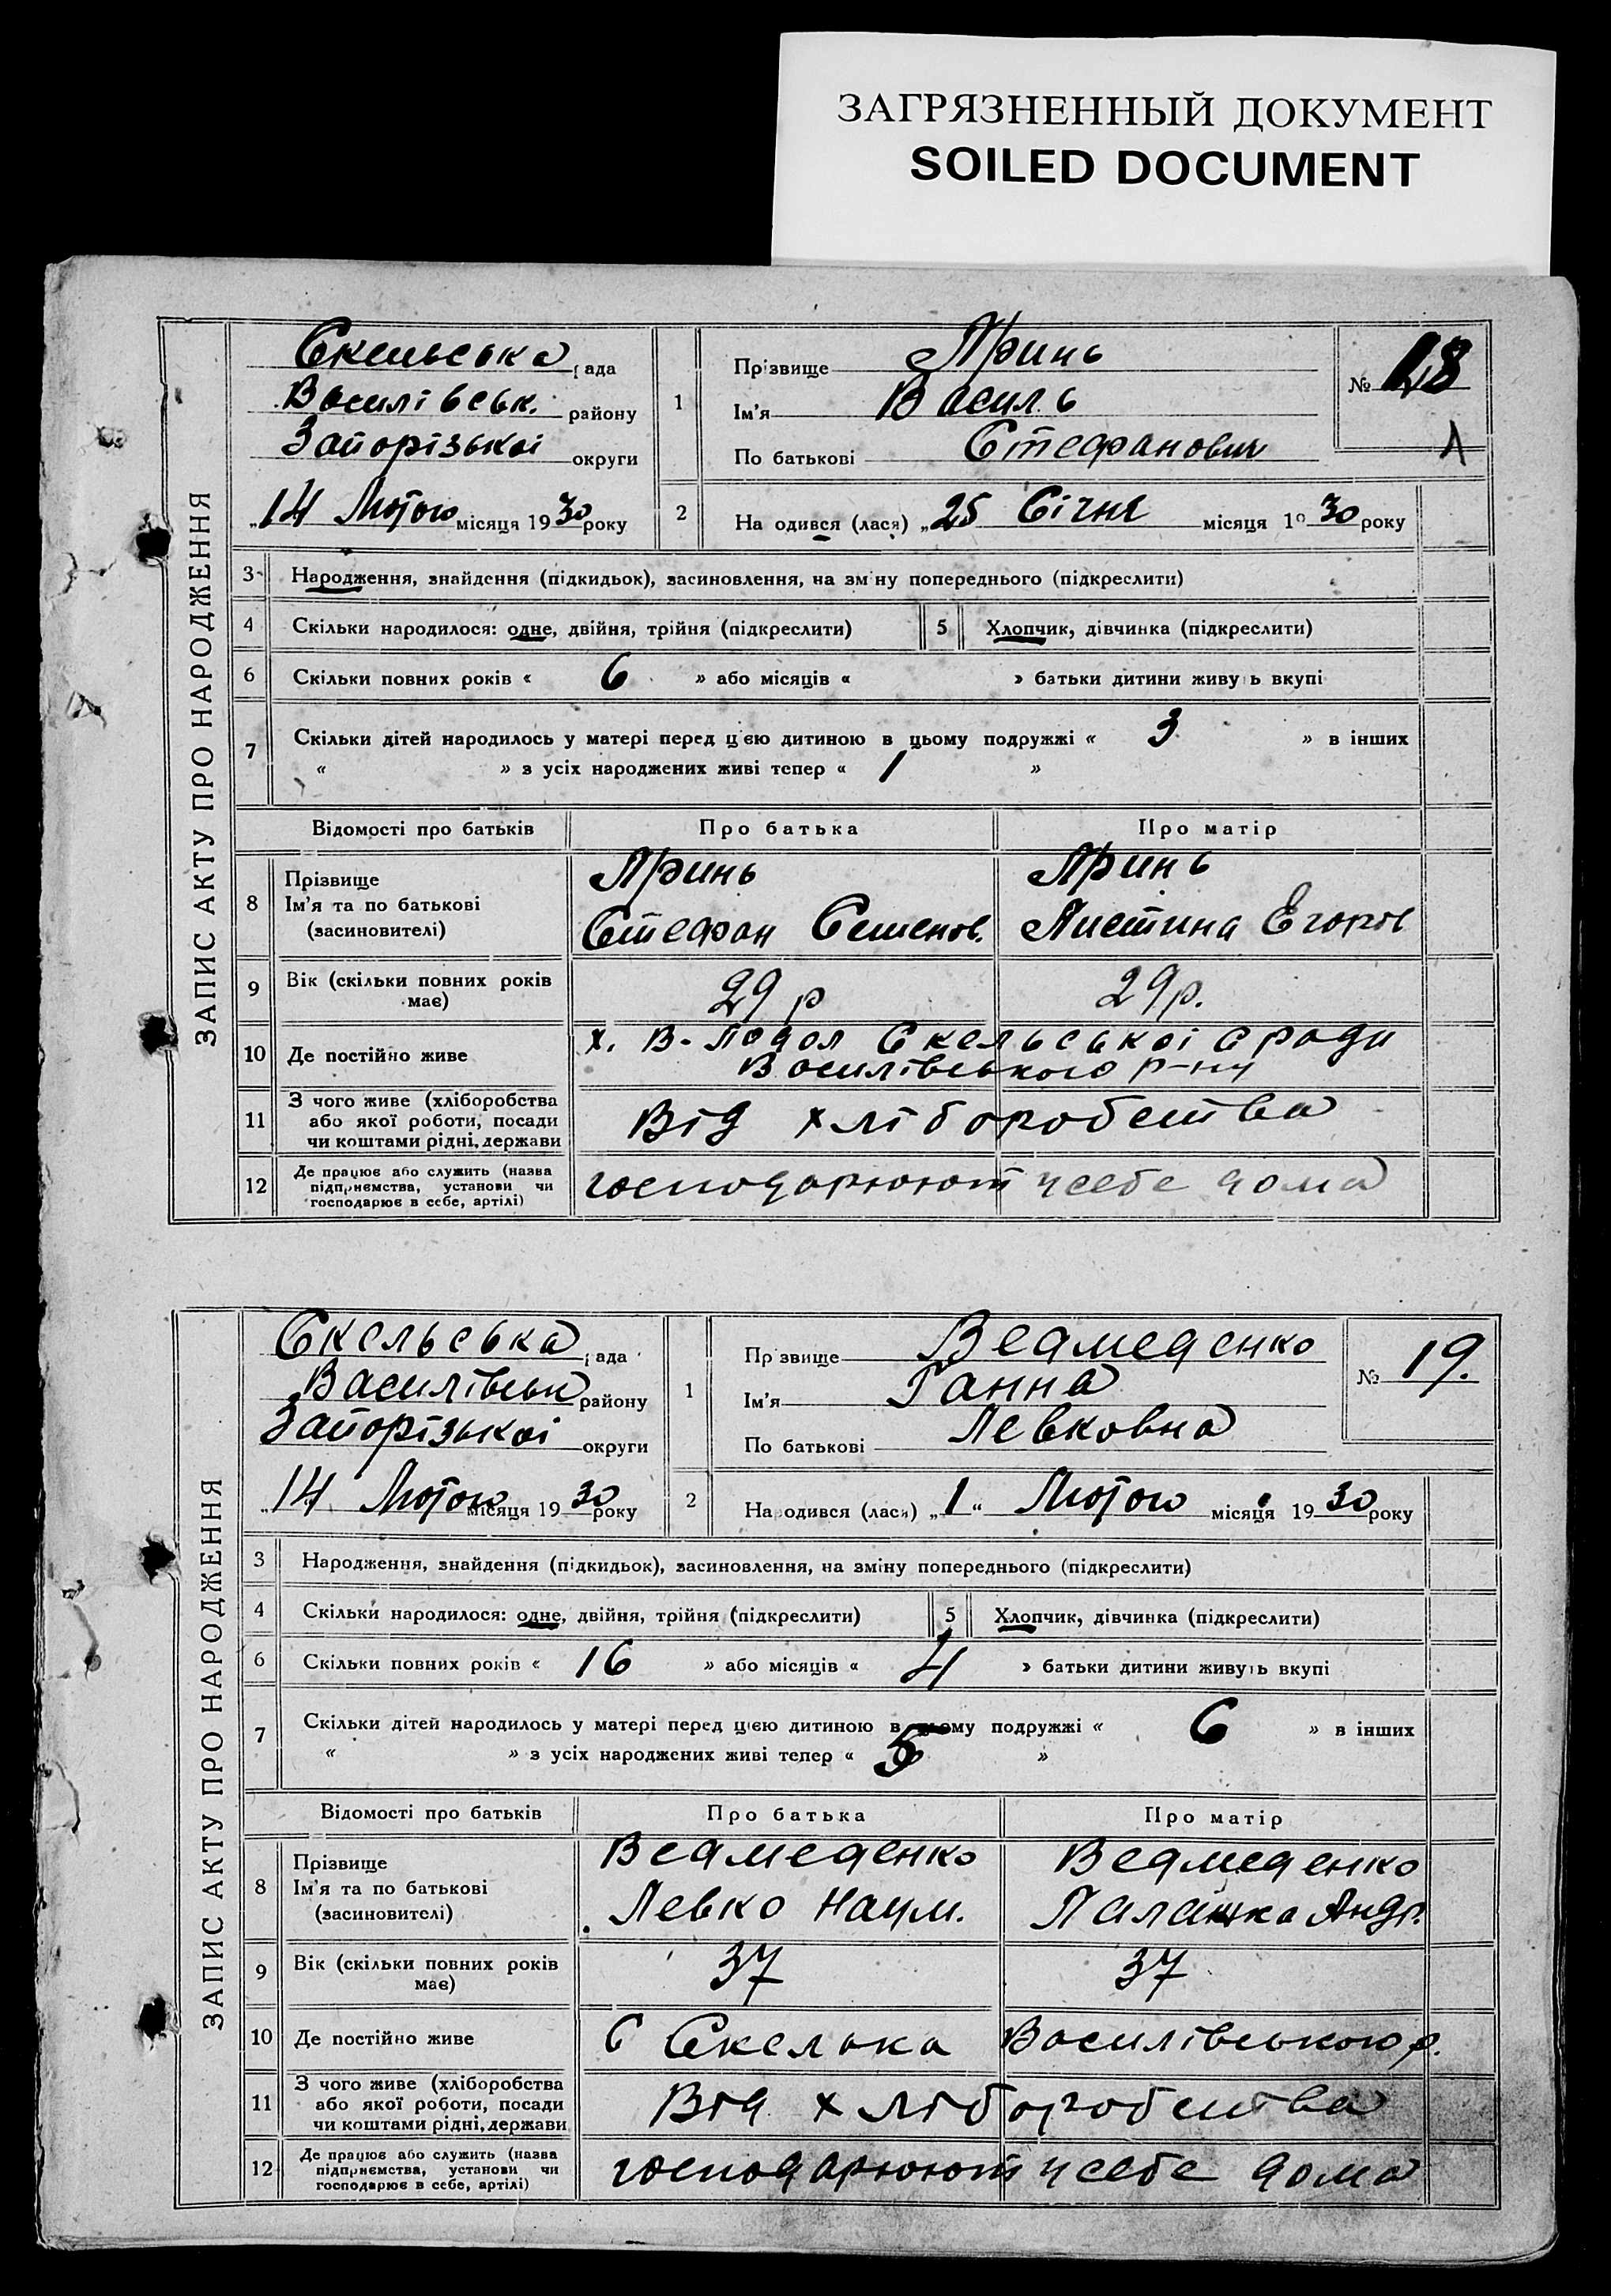 ЗАГРЯЗНЕННЫЙ ДОКУМЕНТ
SOILED DOCUMENT
ЗАПИС АКТУ ПРО НАРОДЖЕННЯ
Скельська рада
Василівськ. району
Запорізькоі округи
„14 Лютого місяця 1930 року
1
Прізвище Принь
Ім'я Василь
По батькові Стефанович
№ 18
2
На одився (лася) „25 Січня місяця 19 30 року
3 Народження, знайдення (підкидьок), засиновлення, на зміну попереднього (підкреслити)
4 Скільки народилося: одне, двійня, трійня (підкреслити) 5 Хлопчик, дівчинка (підкреслити)
6 Скільки повних років « 6 » або місяців « » батьки дитини живуть вкупі
7 Скільки дітей народилось у матері перед цією дитиною в цьому подружжі « 3 » в інших
« » з усіх народжених живі тепер « 1 »
Відомості про батьків Про батька Про матір
8 Прізвище Ім'я та по батькові (засиновителі)
Принь Принь
Стефан Семенов. Пистина Егоров
9 Вік (скільки повних років має) 29 р 29 р.
10 Де постійно живе х. В-Подол Скельськоі С ради
Василівського р-ну
11 З чого живе (хліборобства або якої роботи, посади чи коштами рідні, держави Від хліборобства
12 Де працює або служить (назва підприємства, установи чи господарює в себе, артілі) господарюют у себе дома
ЗАПИС АКТУ ПРО НАРОДЖЕННЯ
Скельська рада
Василівськ району
Запорізькоі округи
„14 Лютого місяця 1930 року
1
Прізвище Ведмеденко
Ім'я Ганна
По батькові Левковна
№ 19.
2
Народився (лася) „1“ Лютого місяця 1930 року
3 Народження, знайдення (підкидьок), засиновлення, на зміну попереднього (підкреслити)
4 Скільки народилося: одне, двійня, трійня (підкреслити) 5 Хлопчик, дівчинка (підкреслити)
6 Скільки повних років « 16 » або місяців « 4 » батьки дитини живуть вкупі
7 Скільки дітей народилось у матері перед цією дитиною в цьому подружжі « 6 » в інших
« » з усіх народжених живі тепер « 5 »
Відомості про батьків Про батька Про матір
8 Прізвище Ім'я та по батькові (засиновителі)
Ведмеденко Ведмеденко
Левко Наум. Палашка Андр.
9 Вік (скільки повних років має) 37 37
10 Де постійно живе С Скелька Василівського р.
11 З чого живе (хліборобства або якої роботи, посади чи коштами рідні, держави Від хліборобства
12 Де працює або служить (назва підприємства, установи чи господарює в себе, артілі) господарюют у себе дома